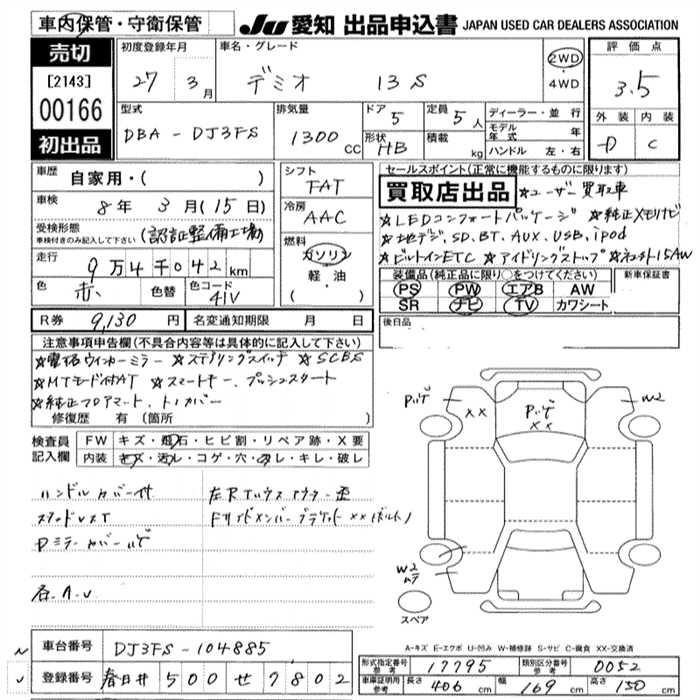 車内保管・守衛保管
JU 愛知 出品申込書 JAPAN USED CAR DEALERS ASSOCIATION
売切
[2143]
00166
初出品
初度登録年月
27 3月
車名・グレード
デミオ 13S
2WD
・
4WD
評価点
3.5
外装 内装
D C
型式
DBA-DJ3FS
排気量
1300cc
ドア
5
形状
HB
定員
5人
積載
kg
ディーラー・並行
モデル年式 年
ハンドル 左・右
車歴
自家用・( )
車検
8年 3月(15日)
受検形態
車検付きのみ記入して下さい
(認証整備工場)
走行
9万4千042km
色
赤
色替
色コード
41V
シフト
FAT
冷房
AAC
燃料
ガソリン
軽・油
( )
R券 9,130円
名変通知期限 月 日
セールスポイント(正常に機能するものに限ります)
買取店出品 ☆ユーザー買取車
☆LEDコンフォートパッケージ ☆純正メモリナビ
☆地デジ、SD、BT、AUX、USB、ipod
☆ビルトインETC ☆アイドリングストップ ☆ 15AW
装備品(純正品に限り○をつけてください)
PS PW エアB AW
SR ナビ TV カワシート
新車保証書
後日品
注意事項申告欄(不具合内容等は具体的に記入して下さい)
☆電格ウィンカーミラー ☆ステアリングスイッチ ☆SCBS
☆MTモード付AT ☆スマートキー、プッシュスタート
☆純正フロアマート、トノカバー
修復歴 有(箇所
検査員
記入欄
FW キズ・飛石・ヒビ割・リペア跡・X要
内装 キズ・汚レ・コゲ・穴・スレ・キレ・破レ
ハンドルカバー付
左Rインナー
FサイドメンバーブラケットXX(ボルト)
Dミラーカバーハゲ
各A・U
Pハゲ
XX
Pハゲ
XX
W2
W2
スペア
A-キズ E-エクボ U-凹み W-補修跡 S-サビ C-腐食 XX-交換済
車台番号 DJ3FS-104885
登録番号 春日井 500 せ 7802
形式指定番号
参考
17795
類別区分番号
参考
0052
車庫証明用
参考
長さ 406cm 幅 169cm 高さ 150cm